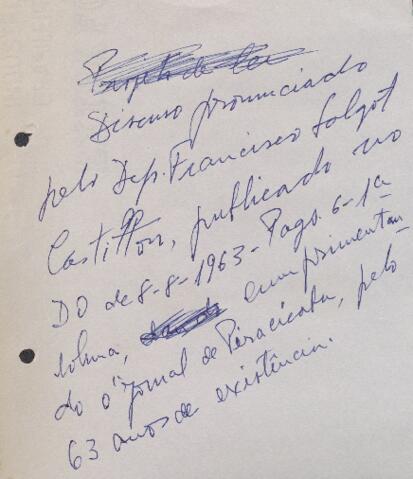 Projeto de Lei
Discurso pronunciado
pelo Dep. Francisco Salgot
Castillon, publicado no
DO de 8-8-1963 - Pag. 6 - 1ª
coluna, cumprimentan
do o "Jornal de Piracicaba, pelo
63 anos de existência.